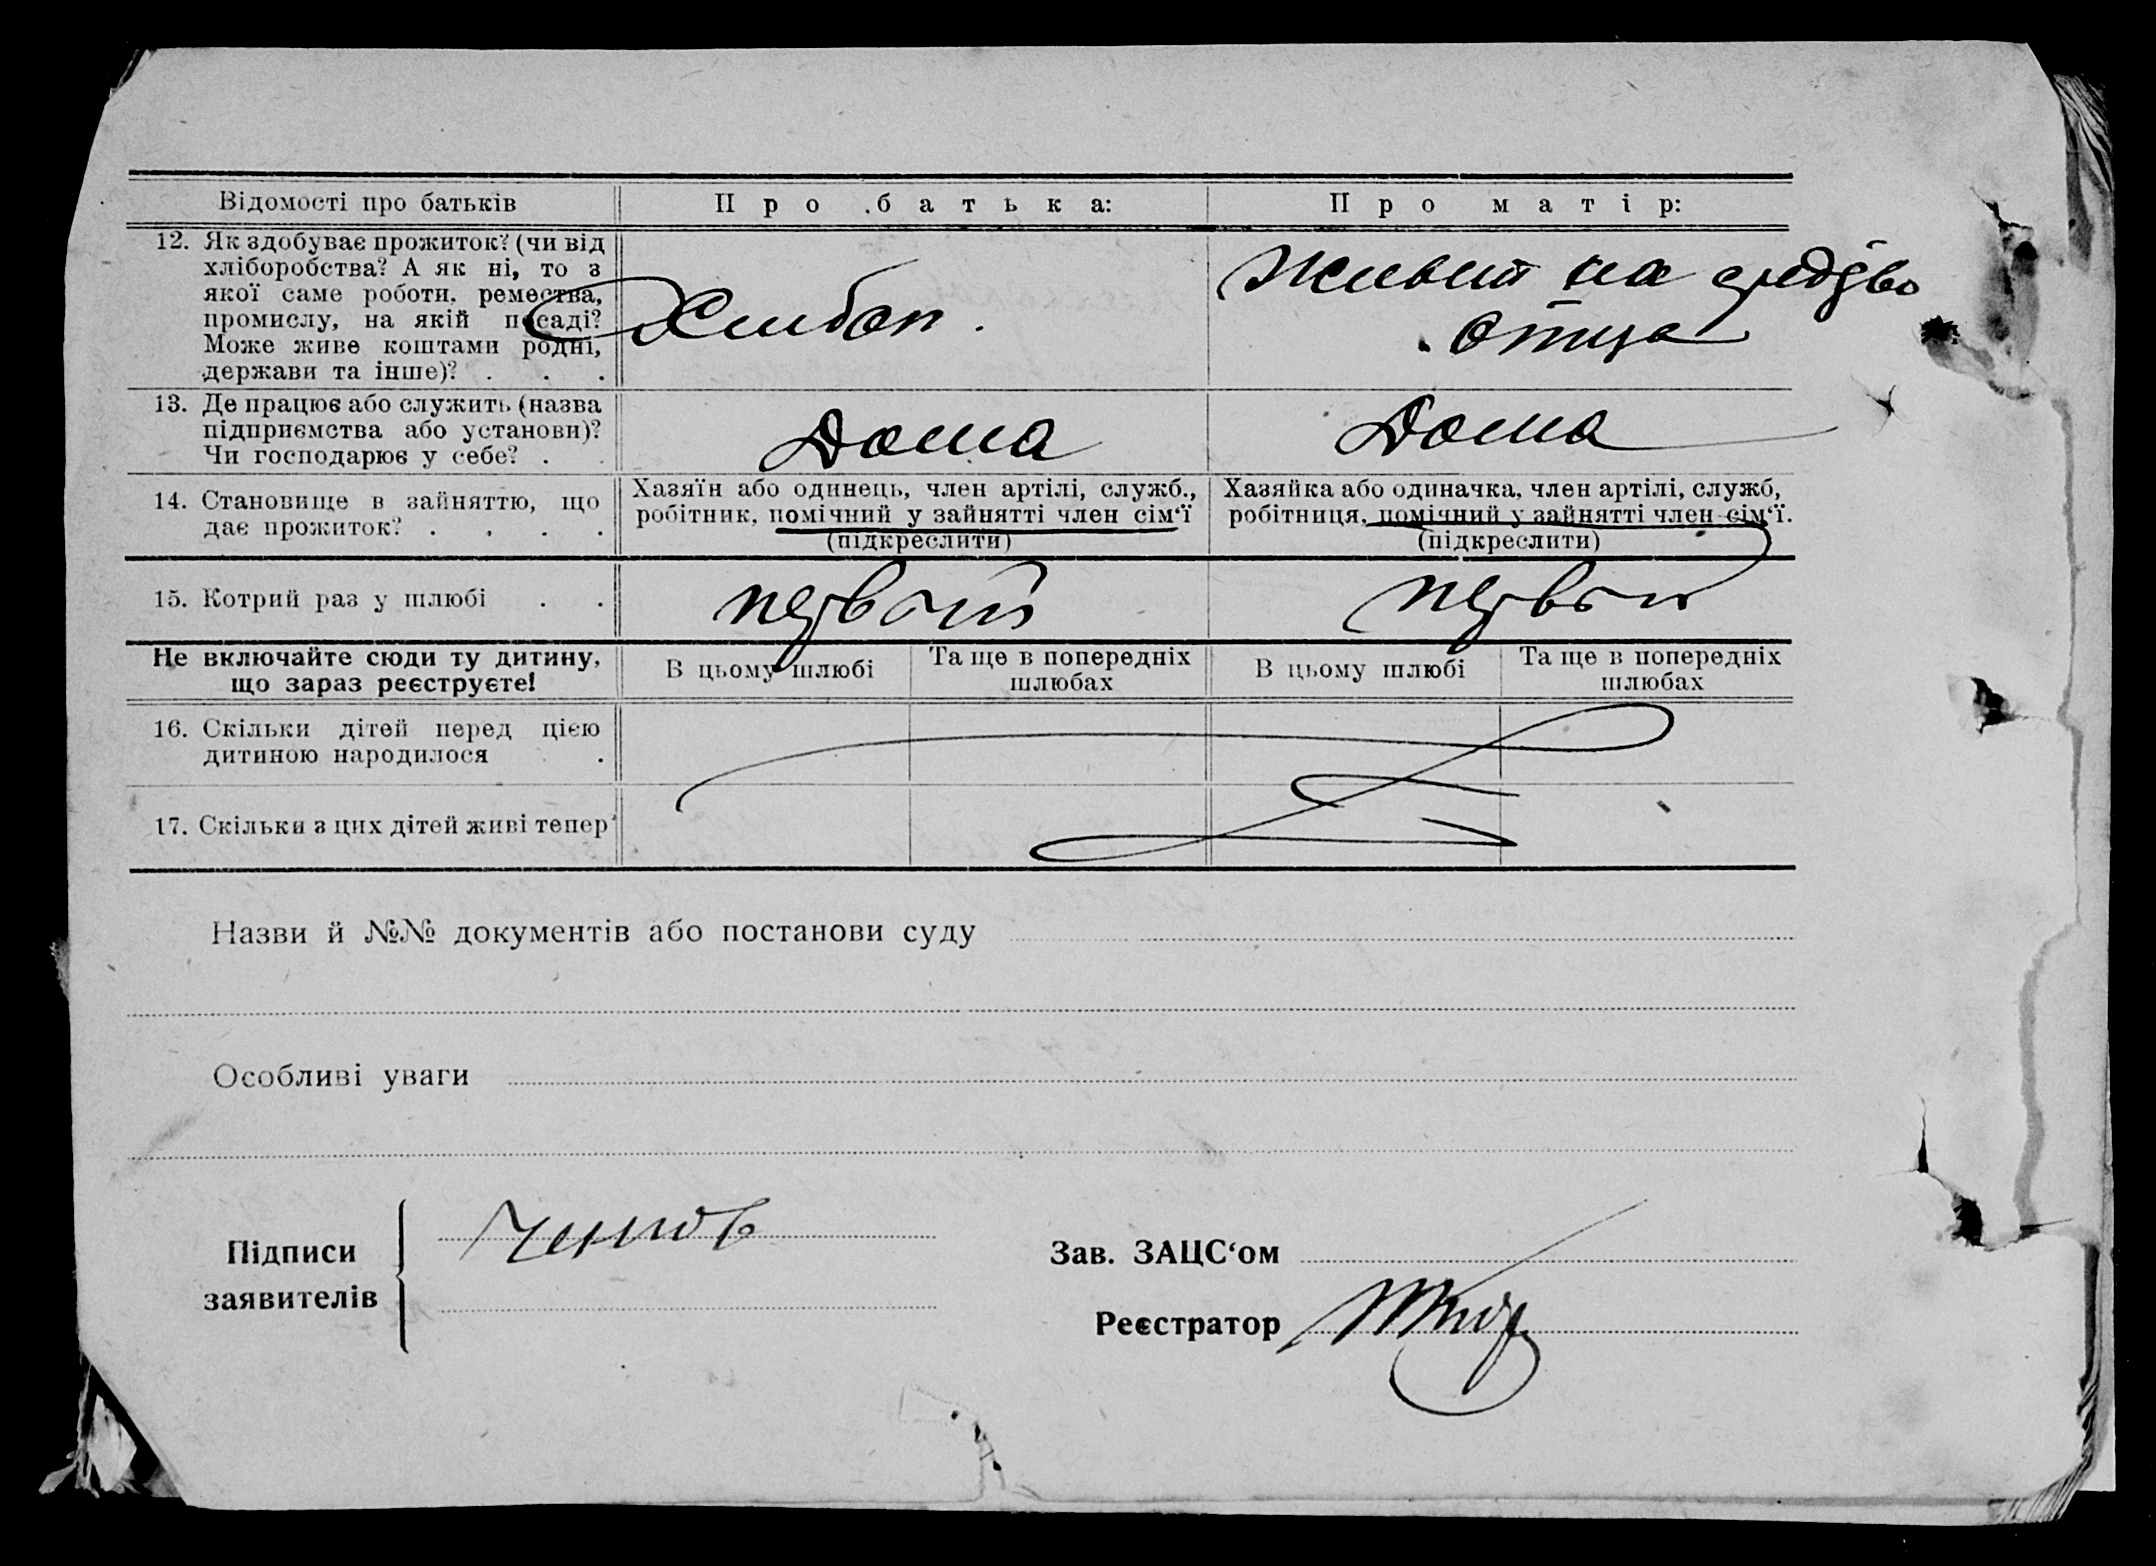 Відомості про батьків
Про батька:
Про матір:
12. Як здобуває прожиток? (чи від
хліборобства? А як ні, то з
якої саме роботи, ремества,
промислу, на якій посаді?
Може живе коштами родні,
держави та інше)? . . .
Хлибоп.
Живит на
отца
13. Де працює або служить (назва
підприємства або установи)?
Чи господарює у себе? . .
Дома
Дома
14. Становище в зайняттю, що
дає прожиток? . . . .
Хазяїн або одинець, член артілі, служб.,
робітник, помічний у зайнятті член сім‘ї
(підкреслити)
Хазяйка або одиначка, член артілі, служб,
робітниця, помічний у зайнятті член сім‘ї.
(підкреслити)
15. Котрий раз у шлюбі . .
первый
первый
Не включайте сюди ту дитину,
що зараз реєструєте!
В цьому шлюбі
Та ще в попередніх
шлюбах
В цьому шлюбі
Та ще в попередніх
шлюбах
16. Скільки дітей перед цією
дитиною народилося .
17. Скільки з цих дітей живі тепер
Назви й №№ документів або постанови суду
Особливі уваги
Підписи
заявителів
Зав. ЗАЦС‘ом
Реєстратор